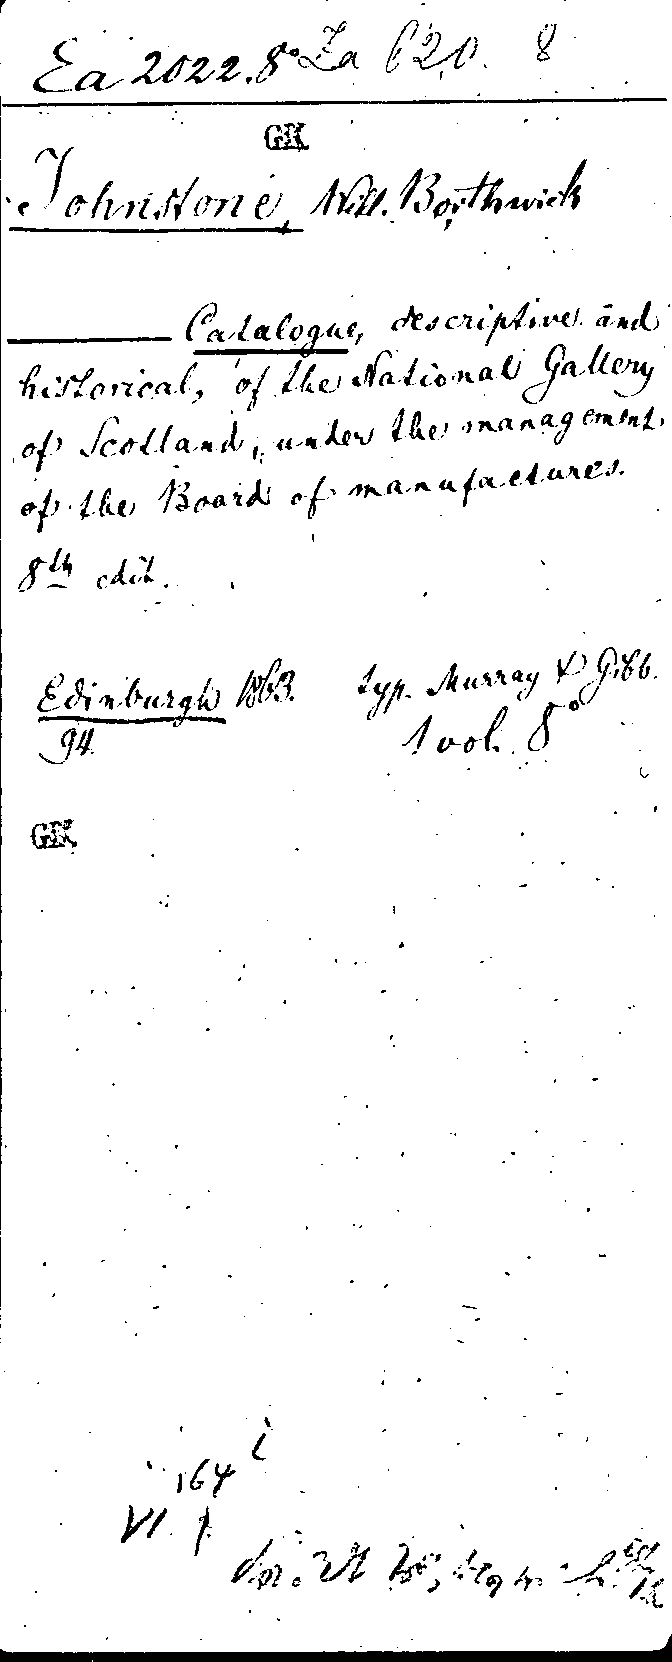 Ea 2022.8° Za 620. 8
GK
Johnstone, Will. Borthwick
Catalogue, descriptive and
historical, of the National Gallery
of Scotland, under the management
of the Board of manufactures.
8th edit.
Edinburgh 1863. typ. Murray & Gibb.
94. 1 vol. 8°
GK
164 i
VI